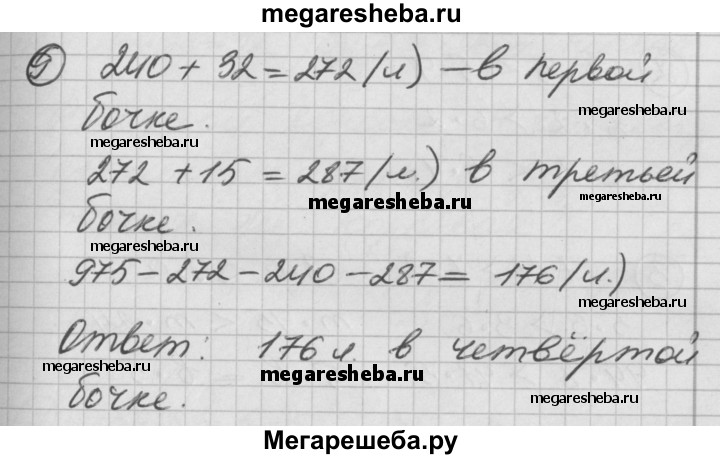 megaresheba.ru
9 240 + 32 = 272 (л) – в первой
megaresheba.ru
бочке.
megaresheba.ru
272 + 15 = 287 (л.) в третьей
megaresheba.ru
megaresheba.ru
бочке.
megaresheba.ru
975 – 272 – 240 – 287 = 176 (л.)
megaresheba.ru
Ответ: 176 л. в четвёртой
megaresheba.ru
megaresheba.ru
бочке.
megaresheba.ru
Мегарешеба.ру